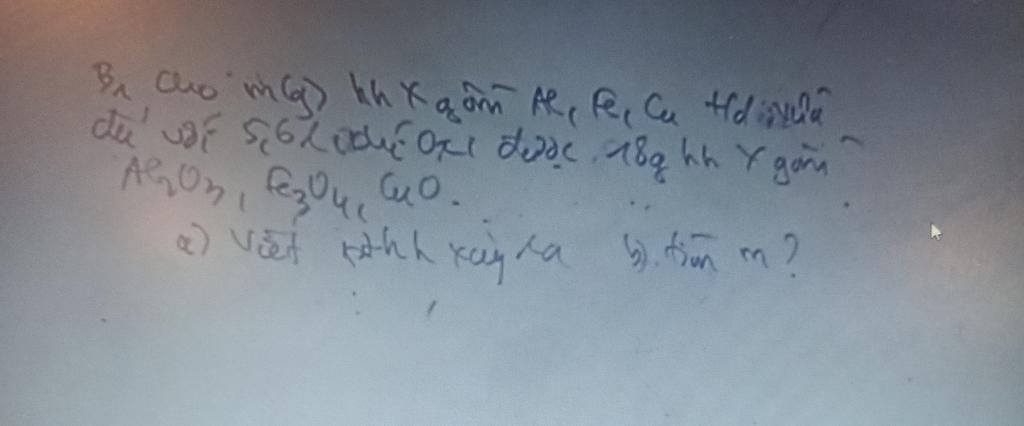 B1 Cho m(g) hh X gồm Al, Fe, Cu td vừa
đủ với 5,6l khí Oxi được 18g hh Y gồm
Al2O3, Fe3O4, CuO.
a) Viết xảy ra b) tìm m?